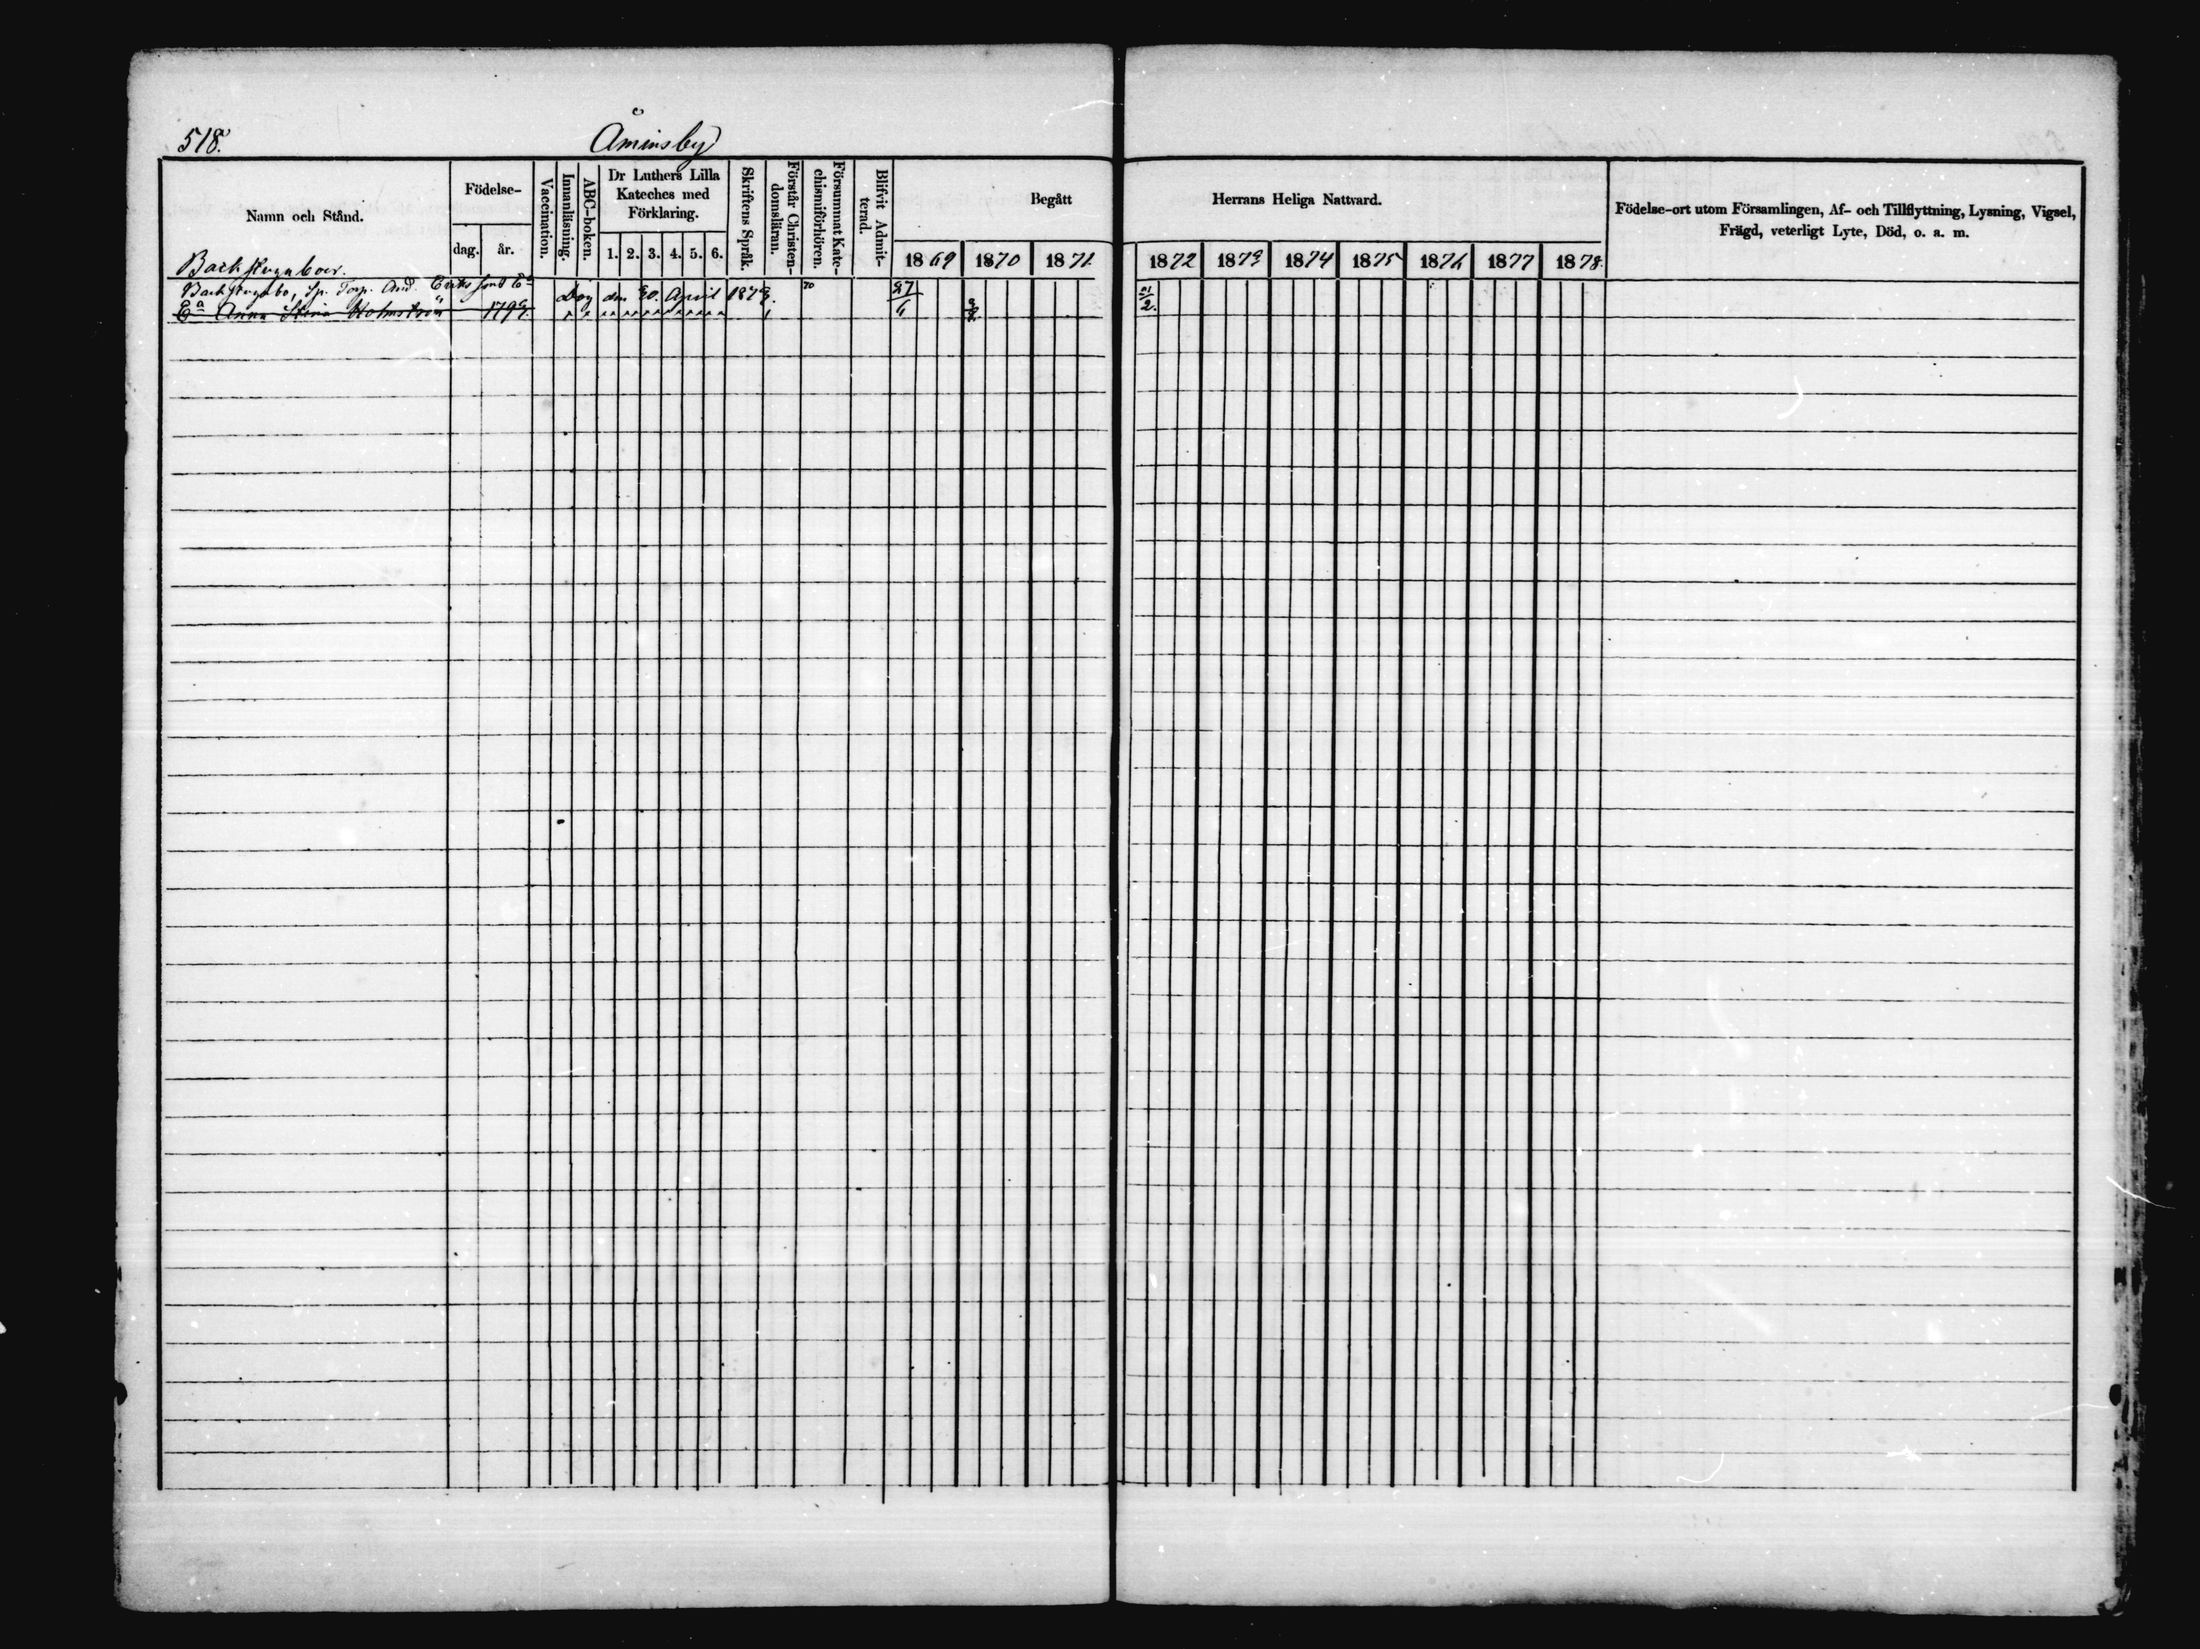 518.
Åminsby
Namn och Stånd.
Födelse-
dag.
år.
Vaccination.
Innanläsning.
ABC-boken.
Dr Luthers Lilla
Kateches med
Förklaring.
1. 2. 3. 4. 5. 6.
Skriftens Språk.
Förstår Christen-
domsläran.
Försummat Kate-
chismiförhören.
Blifvit Admit-
terad.
Begått
Herrans Heliga Nattvard.
1869 1870 1871
1872 1873 1874 1875 1876 1877 1878.
Födelse-ort utom Församlingen, Af- och Tillflyttning, Lysning, Vigsel,
Frägd, veterligt Lyte, Död, o. a. m.
Backstuguboer.
Backstugubo, Sp. Torp. And. Erikssons Ea
Dog den 30. April 1873.
70
Ea Anna Stina Holmström
1799.